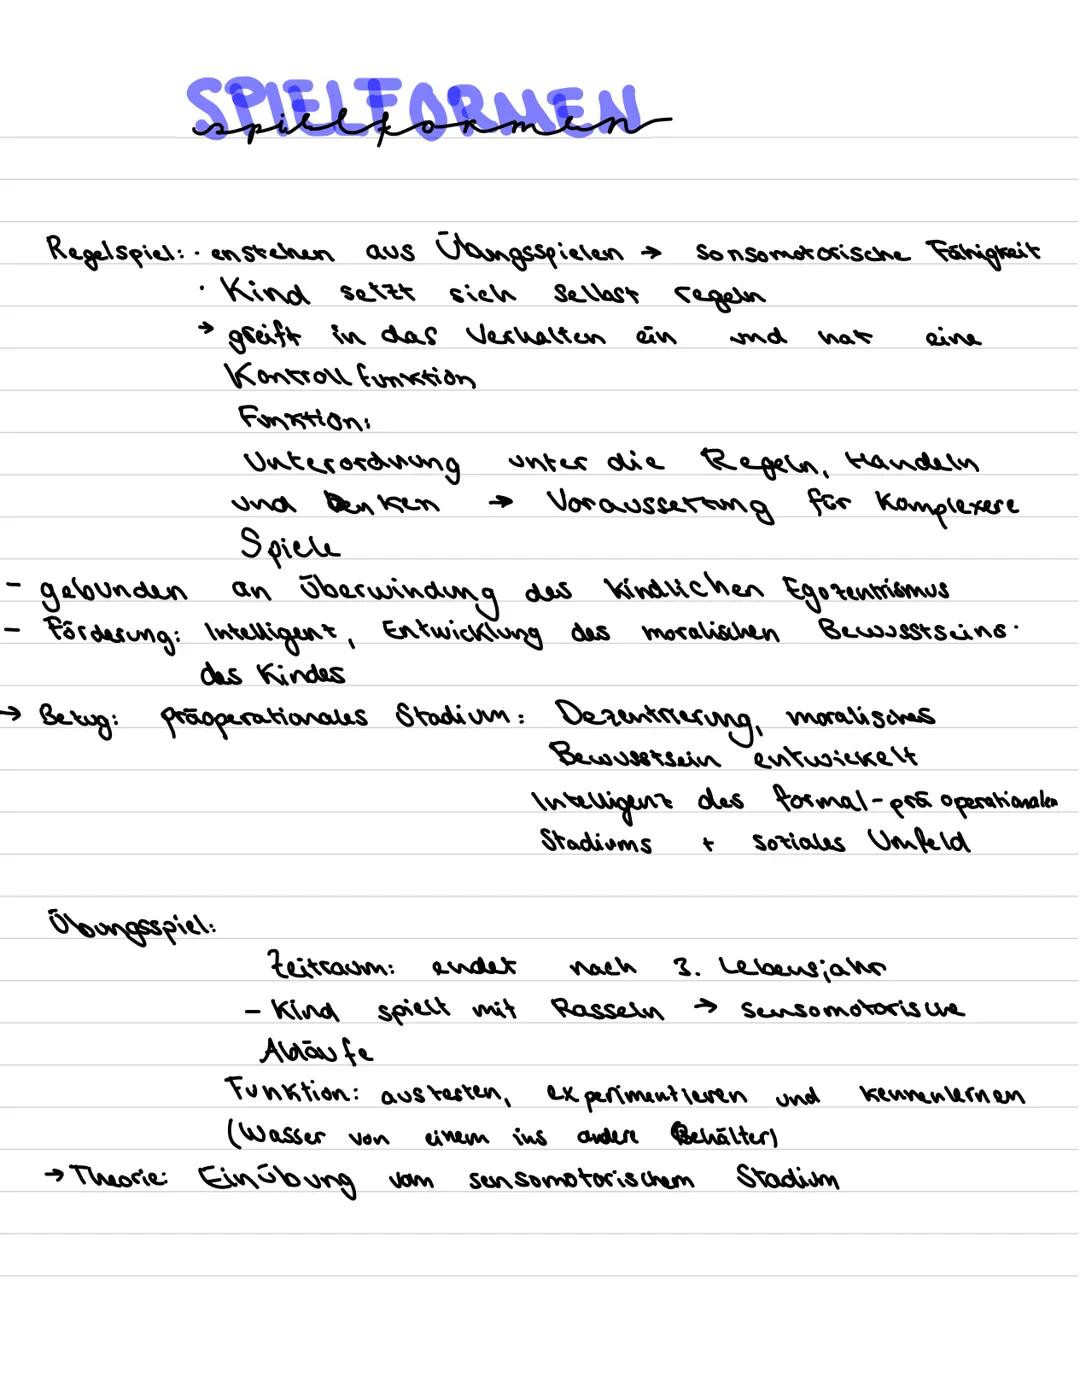 SPIELFORMEN
spielformen
Regelspiel: · enstehen aus Übungsspielen → sonsomotorische Fähigkeit
· Kind setzt sich sellbst regeln
→ greift in das Verhalten ein und hat eine
Kontroll funktion
Funktion:
Unterordnung unter die Regeln, Handeln
und Denken → Voraussetzung für Komplexere
Spiele
- gebunden an Überwindung des kindlichen Egozentrismus
- Förderung: Intelligenz, Entwicklung des moralischen Bewusstseins.
des Kindes
→ Bezug: präoperationales Stadium: Dezentrierung, moralisches
Bewusstsein entwickelt
Intelligenz des formal-prä operationalen
Stadiums + soziales Umfeld
Übungsspiel:
Zeitraum: endet nach 3. Lebensjahr
- Kind spielt mit Rasseln → sensomotorische
Abläufe
Funktion: austesten, experimentieren und kennenlernen
(Wasser von einem ins andere Behälter)
→ Theorie: Einübung vom sensomotorischem Stadium